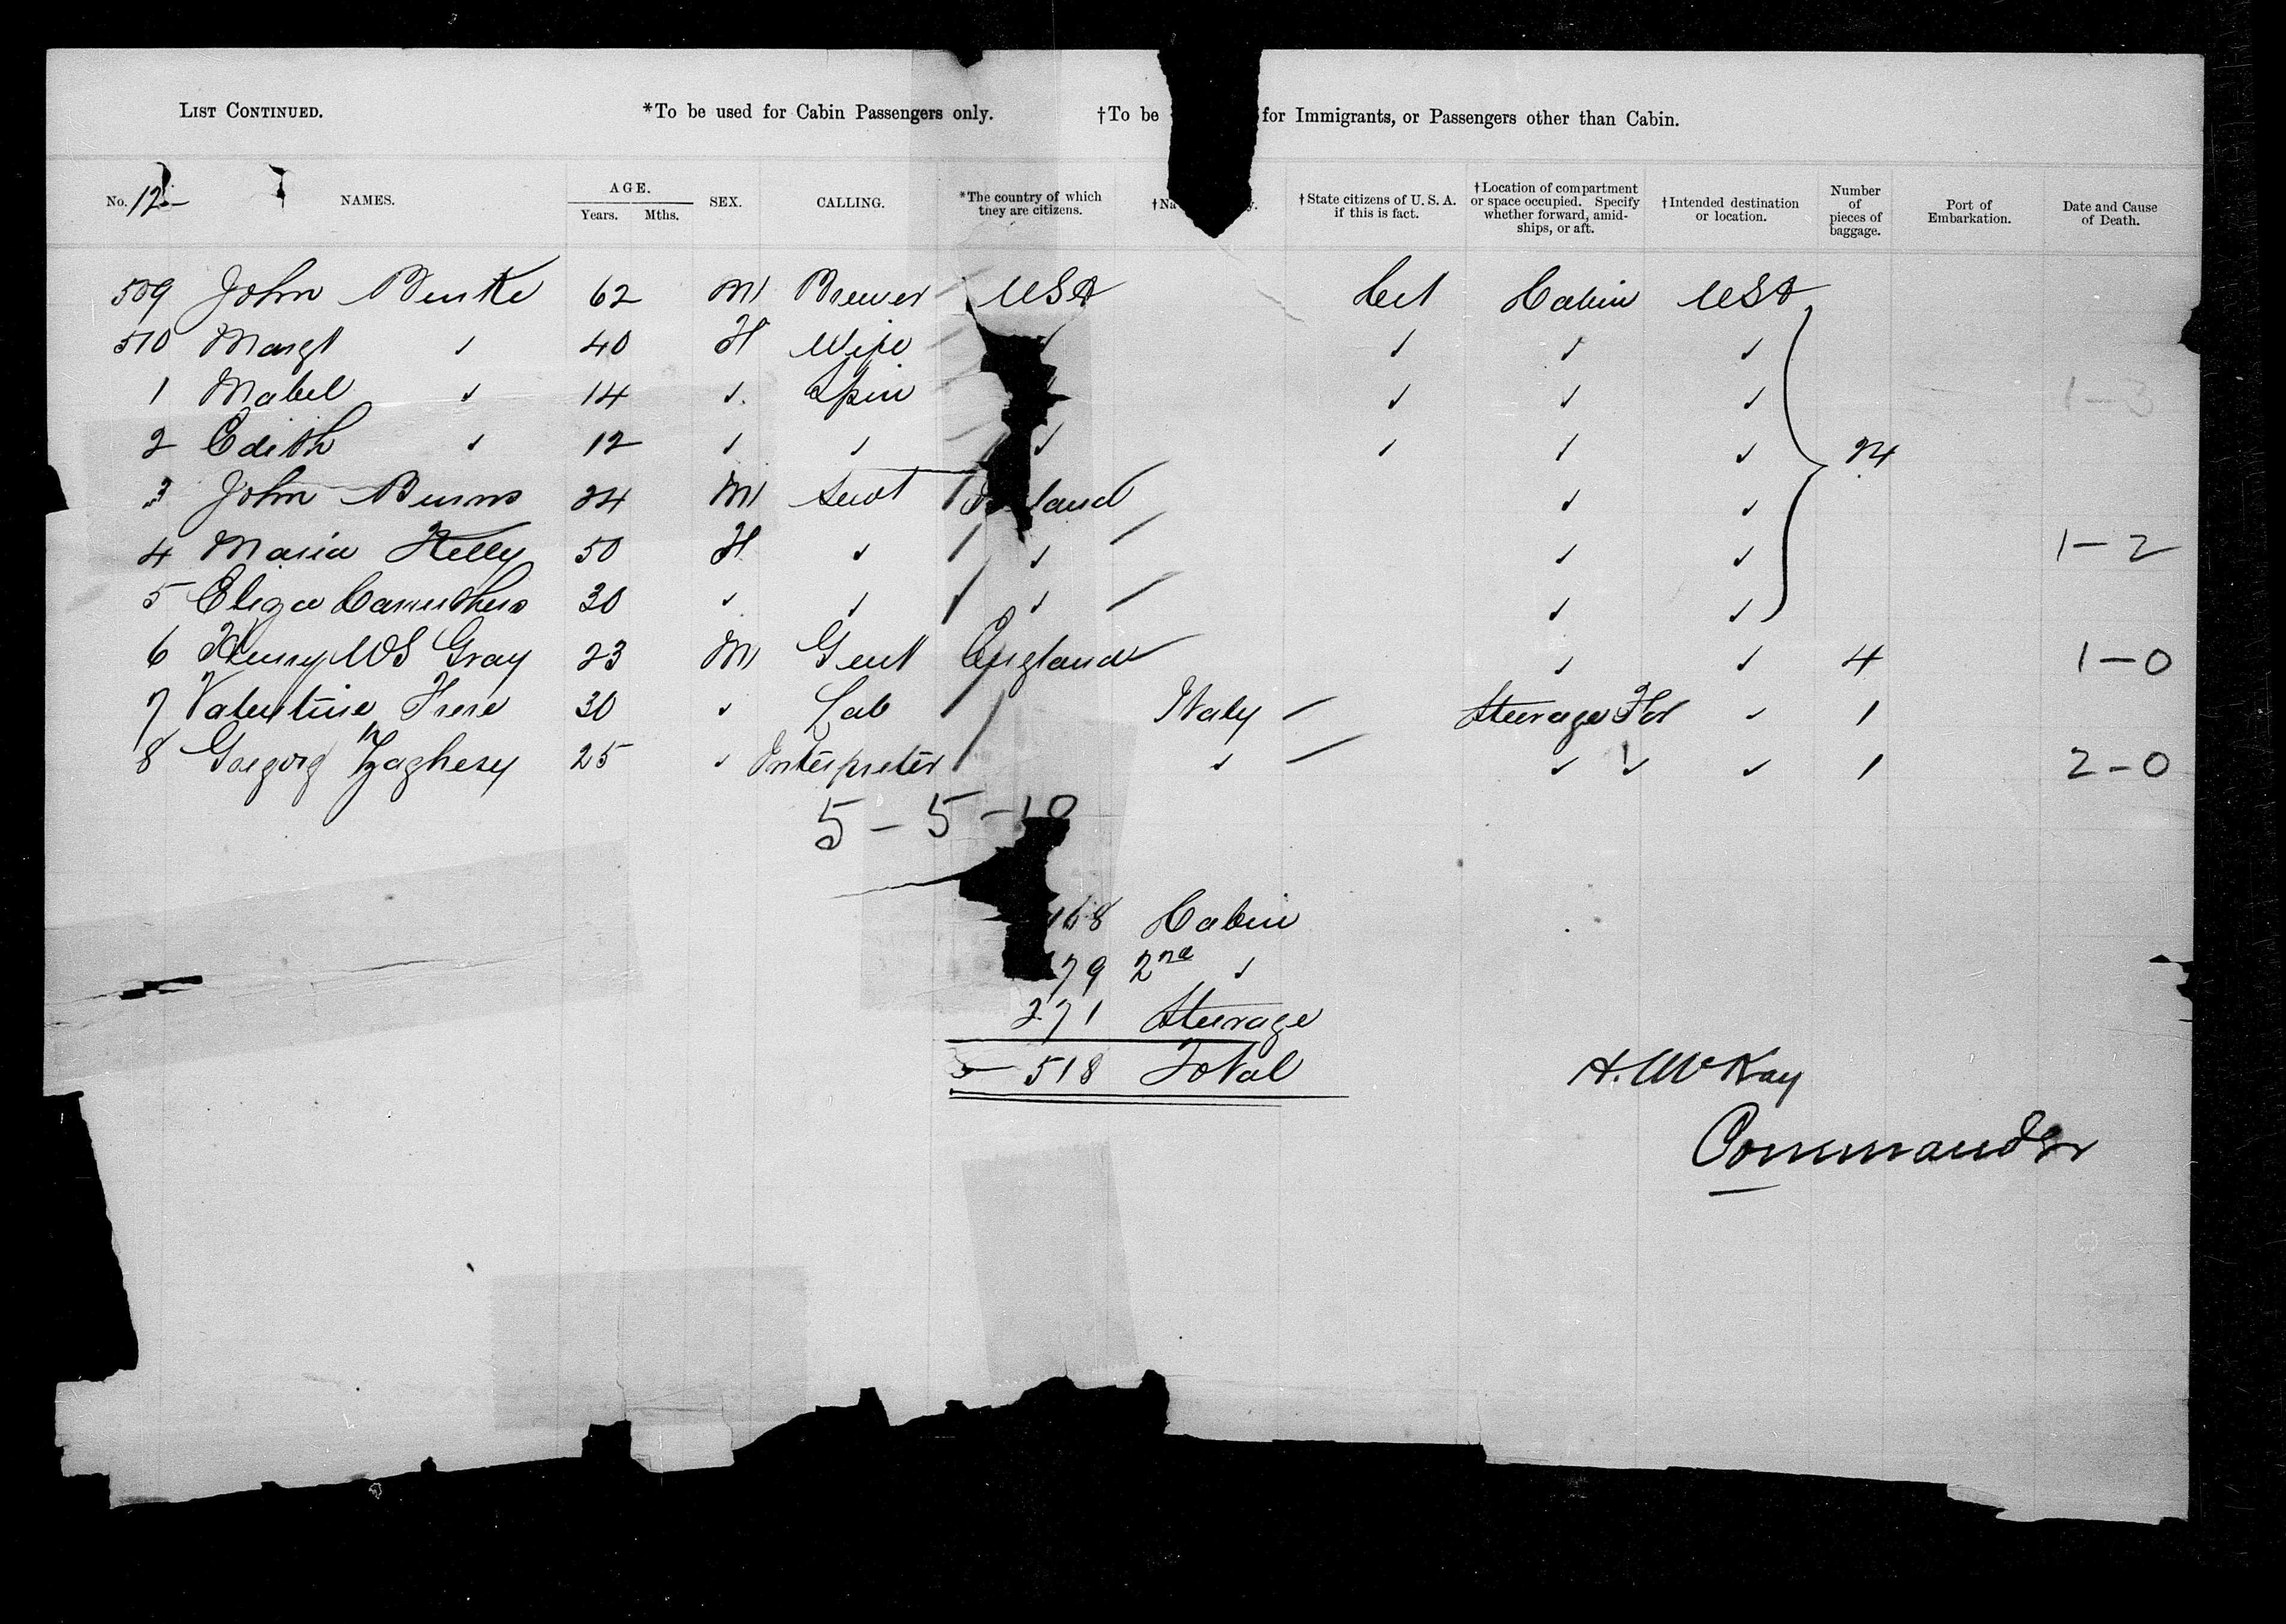 LIST CONTINUED. *To be used for Cabin Passengers only. †To be for Immigrants, or Passengers other than Cabin.
No. 12 NAMES. AGE. Years. Mths. SEX. CALLING. *The country of which they are citizens. †State citizens of U. S. A. if this is fact. †Location of compartment or space occupied. Specify whether forward, amid-ships, or aft. †Intended destination or location. Number of pieces of baggage. Port of Embarkation. Date and Cause of Death.
509 John Burke 62 M Brewer USA Cit Cabin USA
510 Margt ✓ 40 F Wife ✓ ✓ ✓ ✓
1 Mabel ✓ 14 ✓ Spin ✓ ✓ ✓ 1-3
2 Edith ✓ 12 ✓ ✓ ✓ ✓ ✓ ✓ 24
3 John Burns 24 M Servt land ✓ ✓
4 Maria Kelly 50 F ✓ ✓ ✓ ✓ 1-2
5 Eliza Carruthers 30 ✓ ✓ ✓ ✓ ✓
6 Henry WS Gray 23 M Gent England ✓ ✓ 4 1-0
7 Valentine Frere 30 ✓ Lab Italy Steerage For ✓ 1
8 25 ✓ Interpreter ✓ ✓ ✓ ✓ 1 2-0
5-5-10
168 Cabin
79 2nd ✓
271 Steerage
518 Total
H. McKay
Commander